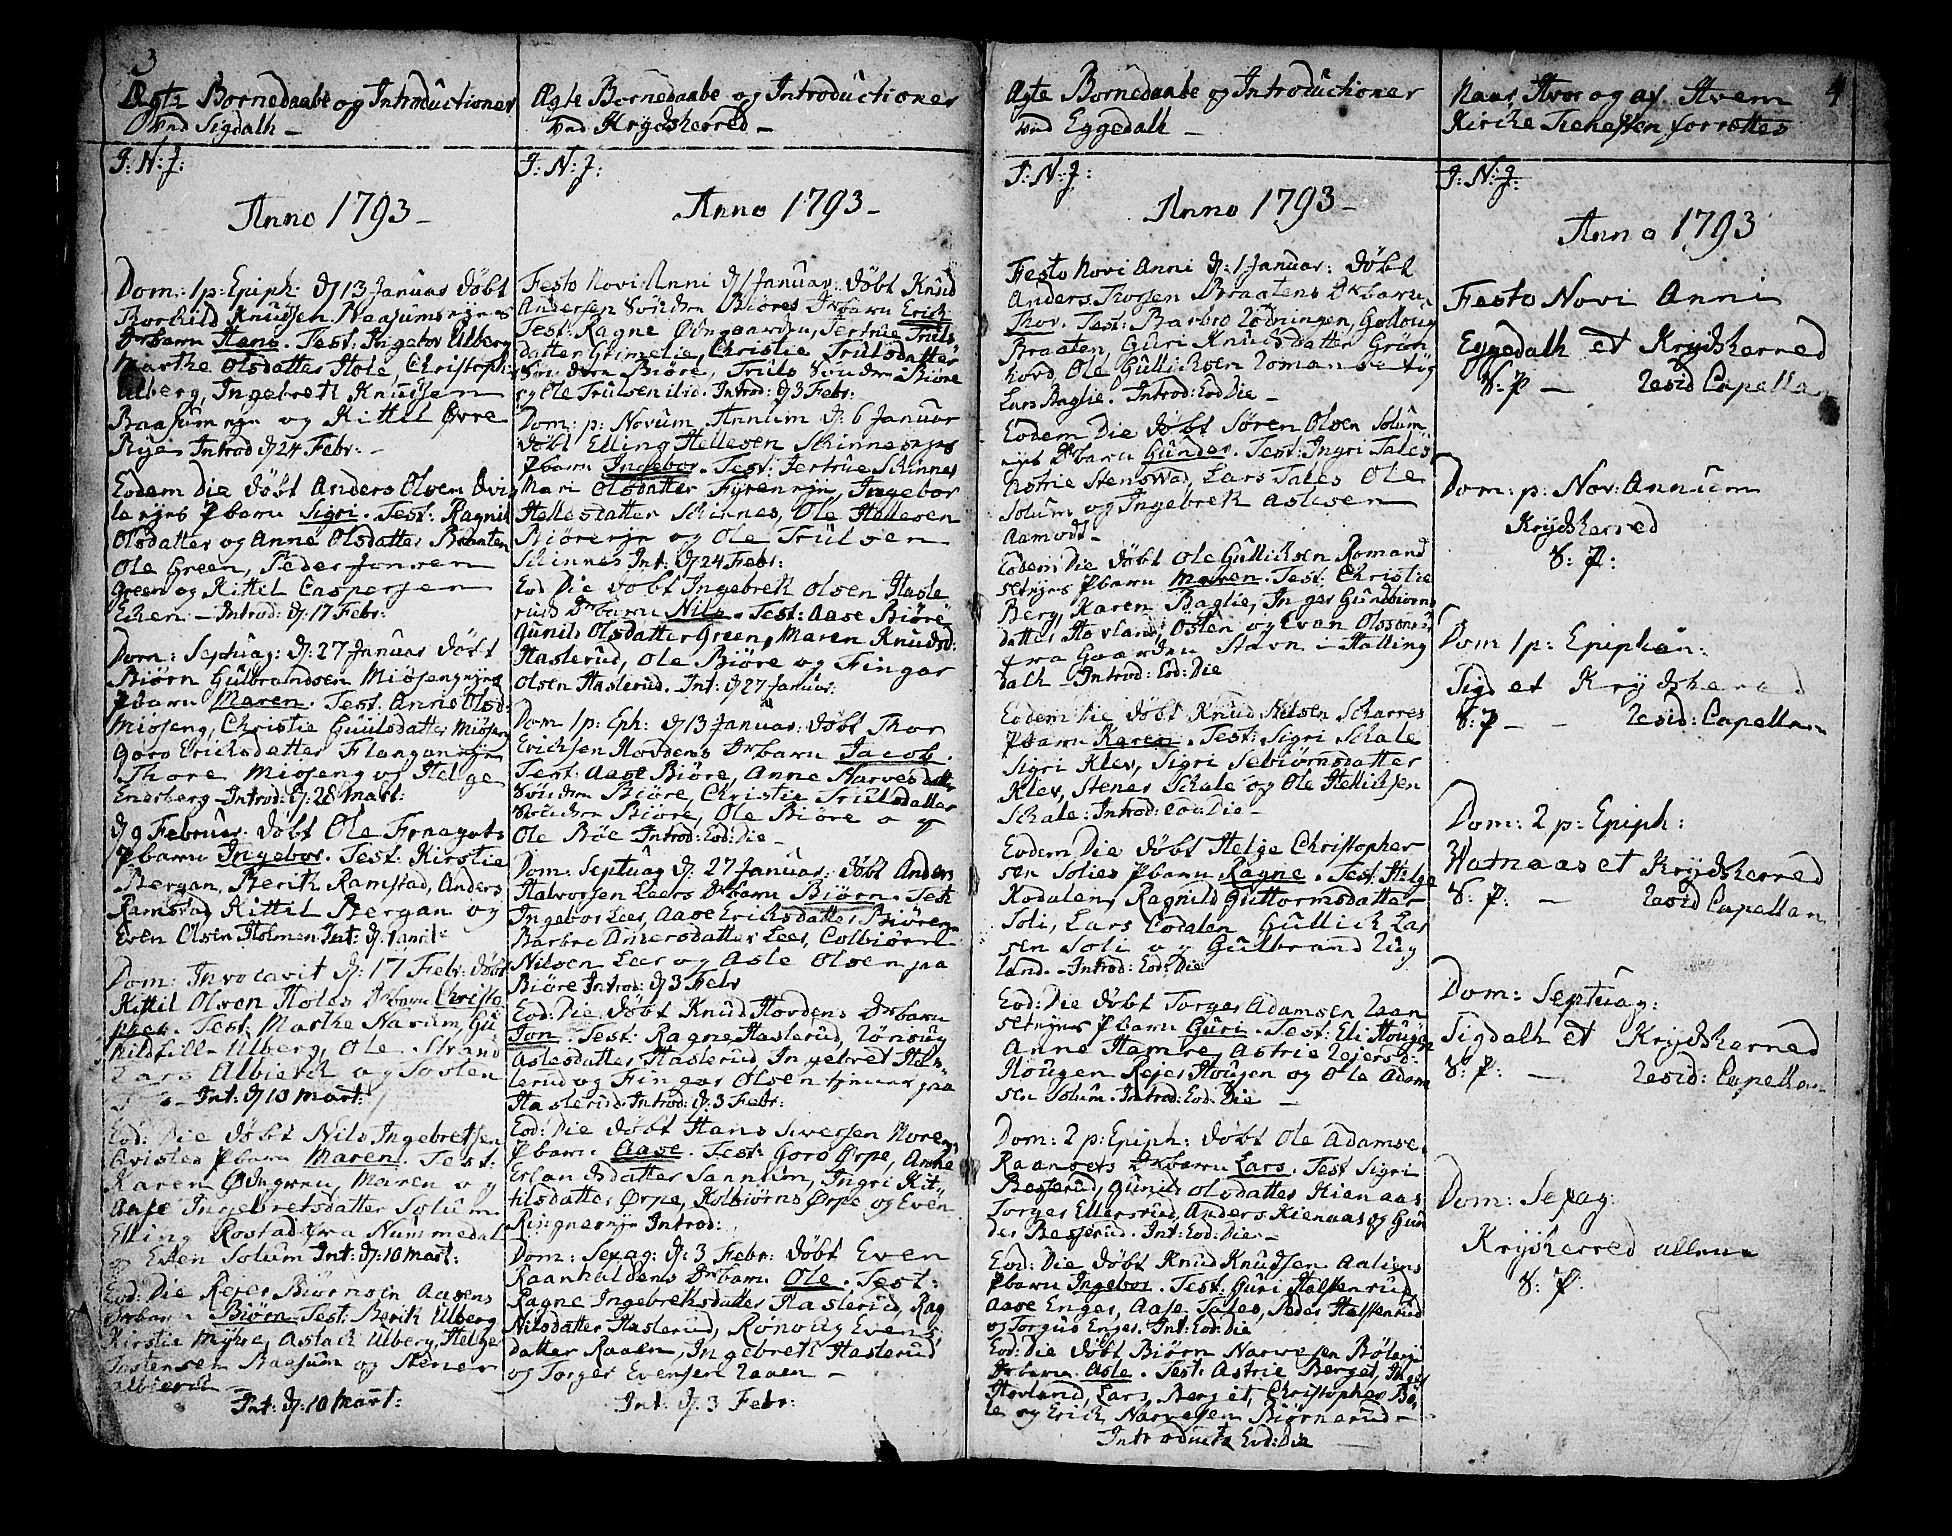 3
Ægte Bornedaabe og Introductioner
vnd Sigdahl -
J: N: J:
Anno 1793 -
Dom: 1 p: Epiph: d/ 13 Januar døbt
Thorkild Knudsen Baasumsejes
Drbarn Hans. Test: Ingebor Ulberg
Marthe Olsdatter Hole, Christopher
Ulberg, Ingebreth Knudsen
Baasumeje og Kittil Øvre
Bye Introd d/ 24 Febr: -
Eodem Die døbt Anders Olsen
Pbarn Sigri. Test: Ragnil
Olsdatter og Anne Olsdatter Braaten
Ole Green, Peder Jonsen
Green og Kittil Caspersen
Eken - Introd: d/ 17 Febr:
Dom: Septuag: d/ 27 Januar døbt
Biørn Gulbrandsen Miøsengejes
Pbarn Maren. Test. Anne Olsd:
Miøseng, Christie Guulsdatter Miøseng
Goro Ericksdatter Flangan eje
Thore Miøseng og Helge
Endsberg Introd: d/ 28 Mart:
d/ 9 Februar døbt Ole Frnagots
Pbarn Ingebor. Test: Kirstie
Bergan, Berith Ramstad, Anders
Ramstad Kittil Bergan og
Even Olsen Holmen Int: d/ 1 april
Dom: Invocavit d/ 17 Febr: døbt
Kittil Olsen Holes Drbarn Christo
pher. Test: Marthe Narum, Gu
nild Ulberg, Ole Strand
Lars Albierch og Tosten
Int: d/ 10 Mart:
Eod: Die døbt Nils Ingebretsen
Qvisles Pbarn Maren. Test:
Karen Ødngreu, Maren og
Aase Ingebretsdatter Solum
Elling Rostad fra Nummedal
og Esten Solum Int: d/ 10 Mart:
Eod: Die Rejer Biørnsen Aasens
Drbarn Biørn Test: Berith Ulberg
Kirstie Myhre, Aslach Ulberg, Helge
Tostensen Baasum og Stener
albierch
Int: d/ 10 Mart:
Ægte Bornedaabe og Introductioner
vnd Krydsherred -
J: N: J:
Anno 1793 -
Festo Novi Anni d/ 1 Januar: døbt Knud
Andersen Søndre Biøres Drbarn Erich
Test: Ragne Ødegaarden, Jertrue Truls
datter Glimelie, Christie Trulsdatter
Søndre Biøre, Truls Søndre Biøre
og Ole Trulsen ibid. Introd: d/ 3 Febr:
Dom: p: Novum Annum d/ 6 Januar
døbt Elling Hellesen Skinnesejes
Pbarn Ingebor. Test: Jertrue Skinnes
Mari Olsdatter Fyreneje, Ingebor
Hellesdatter Skinnes, Ole Hellesen
Biøreeje og Ole Trulsen
Skinnes Int: d/ 24 Febr:
Eod Die døbt Ingebreth Olsen Hasle
rud Drbarn Nils. Test: Aase Biøre
Gunild Olsdatter Green, Maren Knudsd:
Haslerud, Ole Biøre og Fingar
Olsen Haslerud. Int: d/ 27 Januar:
Dom 1 p: Eph: d/ 13 Januar: døbt Thor
Erichsen Hovdens Drbarn Jacob.
Test: Aase Biøre, Anne Narvesdatter
Søndre Biøre, Christie Trulsdatter
Søndre Biøre, Ole Biøre og
Ole Bøe Introd: Eod: Die -
Dom: Septuag d/ 27 Januar: døbt Anders
Halvorsen Leers Drbarn Biørn. Test
Ingebor Leer, Aase Ericksdatter Biøren
Barbro Andersdatter Leer, Colbiørn
Nilsen Leer og Asle Olsen paa
Biøre Introd: d/ 3 Febr
Eod: Die døbt Knud Hovdens Drbarn
Jon. Test: Ragne Haslerud, Rønoug
Aslesdatter Haslerud Ingebret Has
lerud og Fingar Olsen tjener paa
Haslerud. Introd: d/ 3 Febr:
Eod: Die døbt Hans Siversen Norens
Pbarn Aase. Test: Goro Ørpe, Anne
Erlandsdatter Sannum, Ingri Kit
tilsdatter Ørpe, Kolbiørns Ørpe og Even
Ringneseje Introd:
Dom: Sexag: d/ 3 Febr: døbt Even
Raanhaldens Drbarn Ole. Test:
Ragne Ingebrethsdatter Haslerud, Rag
Nilsdatter Haslerud, Rønoug Evens
datter Raaen, Ingebreth Haslerud
og Torger Evensen Raaen -
Int: d/ 3 Febr:
Ægte Bornedaabe og Introductioner
vnd Eggedahl -
J: N: J:
Anno 1793 -
Festo Novi Anni d: 1 Januar: døbt
Anders Thorsen Braatens Drbarn
Thor. Test: Barbro Lødningen, Gollaug
Braaten, Guri Knudsdatter Grøn
hovd, Ole Gullichsen Romanset og
Lars Baglie. Introd: Eod Die -
Eodem Die døbt Søren Olsen Solum
ejes Drbarn Gunder. Test: Ingri Tales
Astrie Stensrud, Lars Tales Ole
Solum og Ingebreth Aslesen
Aamodt -
Eodem Die døbt Ole Gullichsen Romand
setejes Pbarn Maren. Test: Christie
Berg, Karen Baglie, Inger Gundbiørns
datter Hovland, Østen og Evan Olssønner
fra Gaarden Stavn i Halling
dahl - Introd: Eod: Die
Eodem Die døbt Knud Nilsen Skarres
Pbarn Karen. Test: Sigri Skale
Sigri Klev, Sigri Sebiørnsdatter
Klev, Stener Skale og Ole Hellichsen
Skale: Introd: eod: Die -
Eodem Die døbt Helge Christopher
sen Solies Pbarn Ragne. Test: Helge
Kodalen, Ragnild Guttormsdatter
Soli, Lars Codalen Gullick Lar
sen Soli og Gulbrand Rug
land. - Introd: Eod: Die
Eod: Die døbt Torger Adamsen Raan
setejes Pbarn Guri. Test: Eli Hougen
Anne Hamre, Astrie Rejersd:
Hougen Rejer Hougen og Ole Adam
sen Solum. Introd: Eod: Die -
Dom: 2 p: Epiph: døbt Ole Adamse.
Raansets Drbarn Lars. Test Sigri
Besserud, Gunild Olsdatter Kienaas
Torger Ellersrud, Anders Kienaas og Gun
der Besserud. Int: Eod: Die -
Eod: Die døbt Knud Knudsen Aaliens
Pbarn Ingebor. Test: Guri Halfsenrud,
Aase Enger, Aase Tales, Peder Halfsenrud
og Torgus Enger. Int: Eod: Die
Eod: Die døbt Biørn Narvesen Bøleeje
Drbarn Asle. Test: Astrie Berget, Inger
Hovland, Lars Berget, Christopher Bø
le og Erich Narvesen Biørnerud -
Introducta Eod: Die
Naar, Hvor og af Hvem 4
Kirke Tienesten forrettes
J: N: J:
Anno 1793
Festo Novi Anni
Eggedahl et Krydsherred
S: P - Resid Capellan
Dom: p: Nov: Annum
Krydsherred
S: P:
Dom 1 p: Epiphan:
Sigd et Krydsherred
S: P - - Resid: Capellan
Dom: 2 p: Epiph:
Watnaas et Krydsherred
S: P: - Resid Capellan
Dom: Septuag:
Sigdalh et Krydsherred
S: P: - Resid: Capellan
Dom: Sexag:
Krysherred allene
S: P.